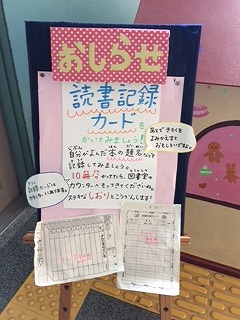 おしらせ
読書記録
カードを
かってみましょう!
自分がよんだ本の題名などを
記録してみましょう。
10冊分かけたら、図書室の
カウンターへもってきてくださいね。
ステキなしおりとこうかんします!
あとできろくを
よみかえすと
おもしろいですよ。
記録カードは
カウンターにあります。